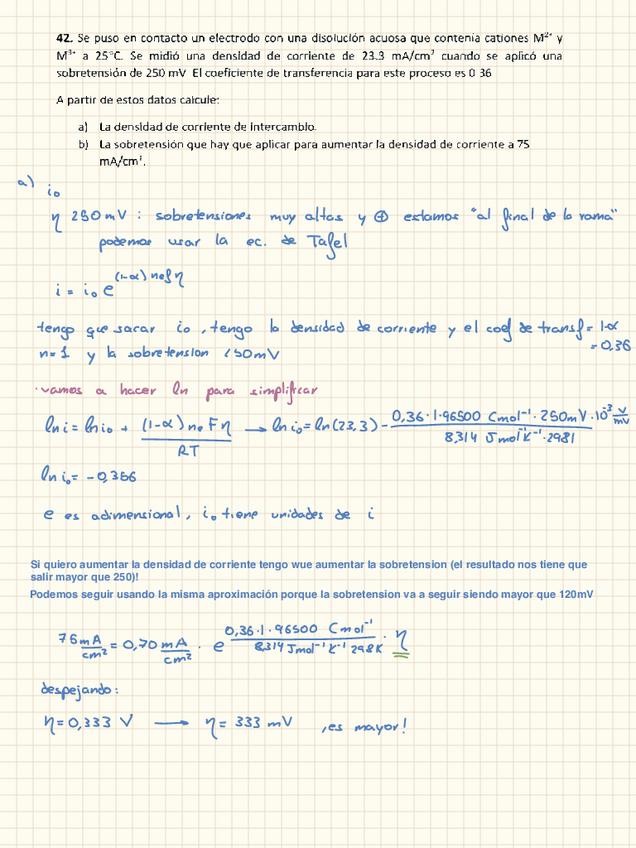 42. Se puso en contacto un electrodo con una disolución acuosa que contenía cationes M²⁺ y
M³⁺ a 25°C. Se midió una densidad de corriente de 23.3 mA/cm² cuando se aplicó una
sobretensión de 250 mV El coeficiente de transferencia para este proceso es 0 36
A partir de estos datos calcule:
a) La densidad de corriente de intercambio.
b) La sobretensión que hay que aplicar para aumentar la densidad de corriente a 75
mA/cm².
a) i₀
η 250 mV : sobretensiones muy altas y ⊕ estamos "al final de la rama"
podemos usar la ec. de Tafel
i = i₀ e^((1-α) n e f η)
tengo que sacar i₀, tengo la densidad de corriente y el coef de transf = 1-α
= 0,36
n=1 y la sobretension 250mV
·vamos a hacer ln para simplificar
ln i = ln i₀ + (1-α) n e F η / RT → ln i₀ = ln(23,3) - 0,36·1·96500 C mol⁻¹·250mV·10⁻³ V/mV / 8,314 J mol⁻¹ K⁻¹·298
ln i₀ = -0,356
e es adimensional, i₀ tiene unidades de i
Si quiero aumentar la densidad de corriente tengo wue aumentar la sobretension (el resultado nos tiene que
salir mayor que 250)!
Podemos seguir usando la misma aproximación porque la sobretension va a seguir siendo mayor que 120mV
75 mA/cm² = 0,70 mA/cm² · e^(0,36·1·96500 C mol⁻¹ / 8,314 J mol⁻¹ K⁻¹ 298 K · η)
despejando:
η = 0,333 V → η = 333 mV , es mayor!